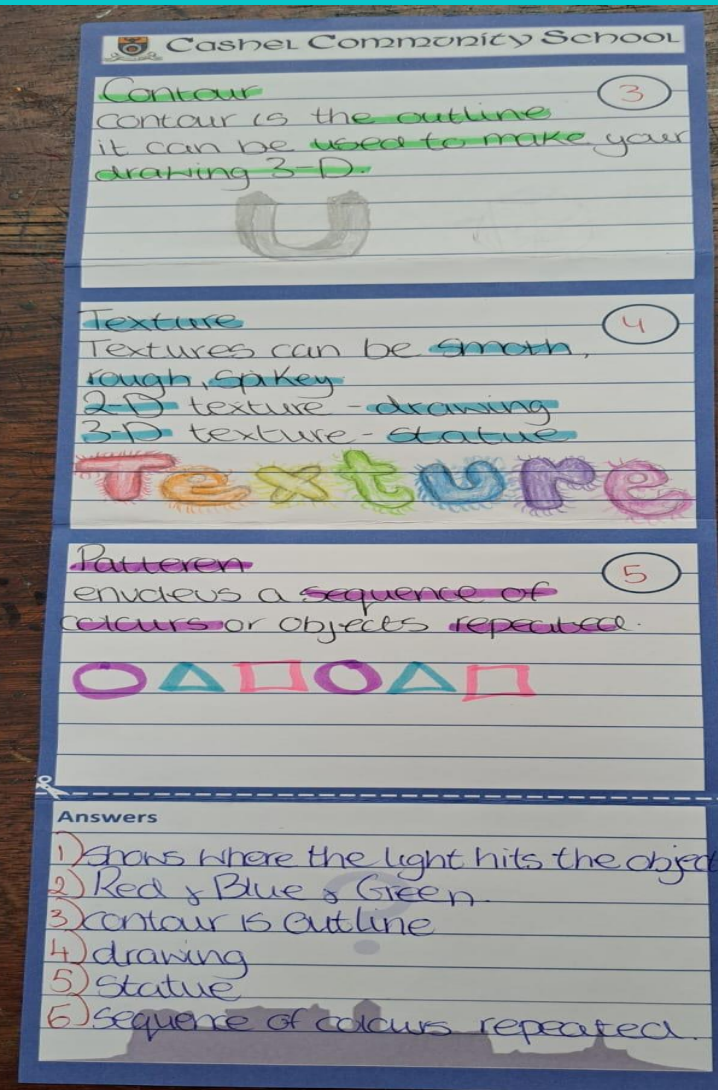 Cashel Community School
Contour
3
Contour is the outline
it can be used to make your
drawing 3-D.
Texture
4
Textures can be smoth,
rough, spikey
2-D texture - drawing
3-D texture - statue
Texture
Patteren
5
a sequence of
colours or objects repeated.
Answers
1) Shows where the light hits the objec
2) Red & Blue & Green.
3) contour is outline
4) drawing
5) Statue
6) sequence of colours repeated.